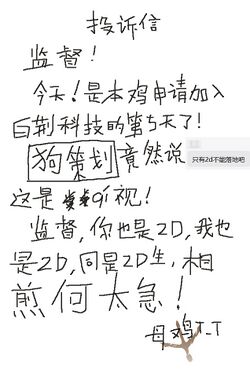 投诉信
监督！
今天！是本鸡申请加入
白荆科技的第5天了！
狗策划竟然说
只有2d不能落地吧
这是 视！
监督，你也是2D，我也
是2D，同是2D生，相
煎何太急！
母鸡T_T